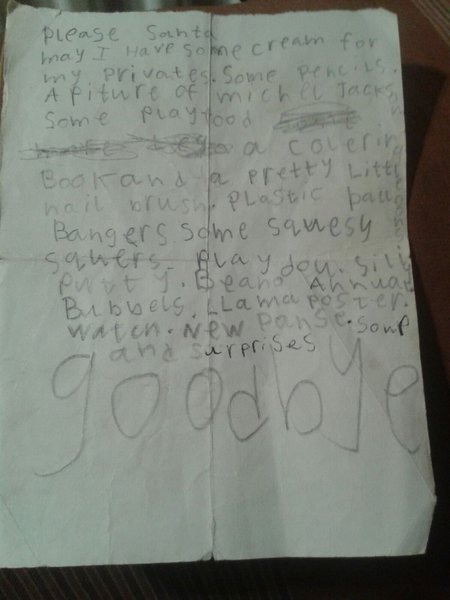 Please Santa
may I Have some cream for
my privates. Some pencils.
A piture of michel Jacks
Some Playfood
a colerin
Book and a pretty Little
nail brush. Plastic
Bangers. Some squesy
squers. Play dou. sily
putty. Beano Annual
Bubbels. LLama poster.
watch. New panse. soup
and surprises
goodbye